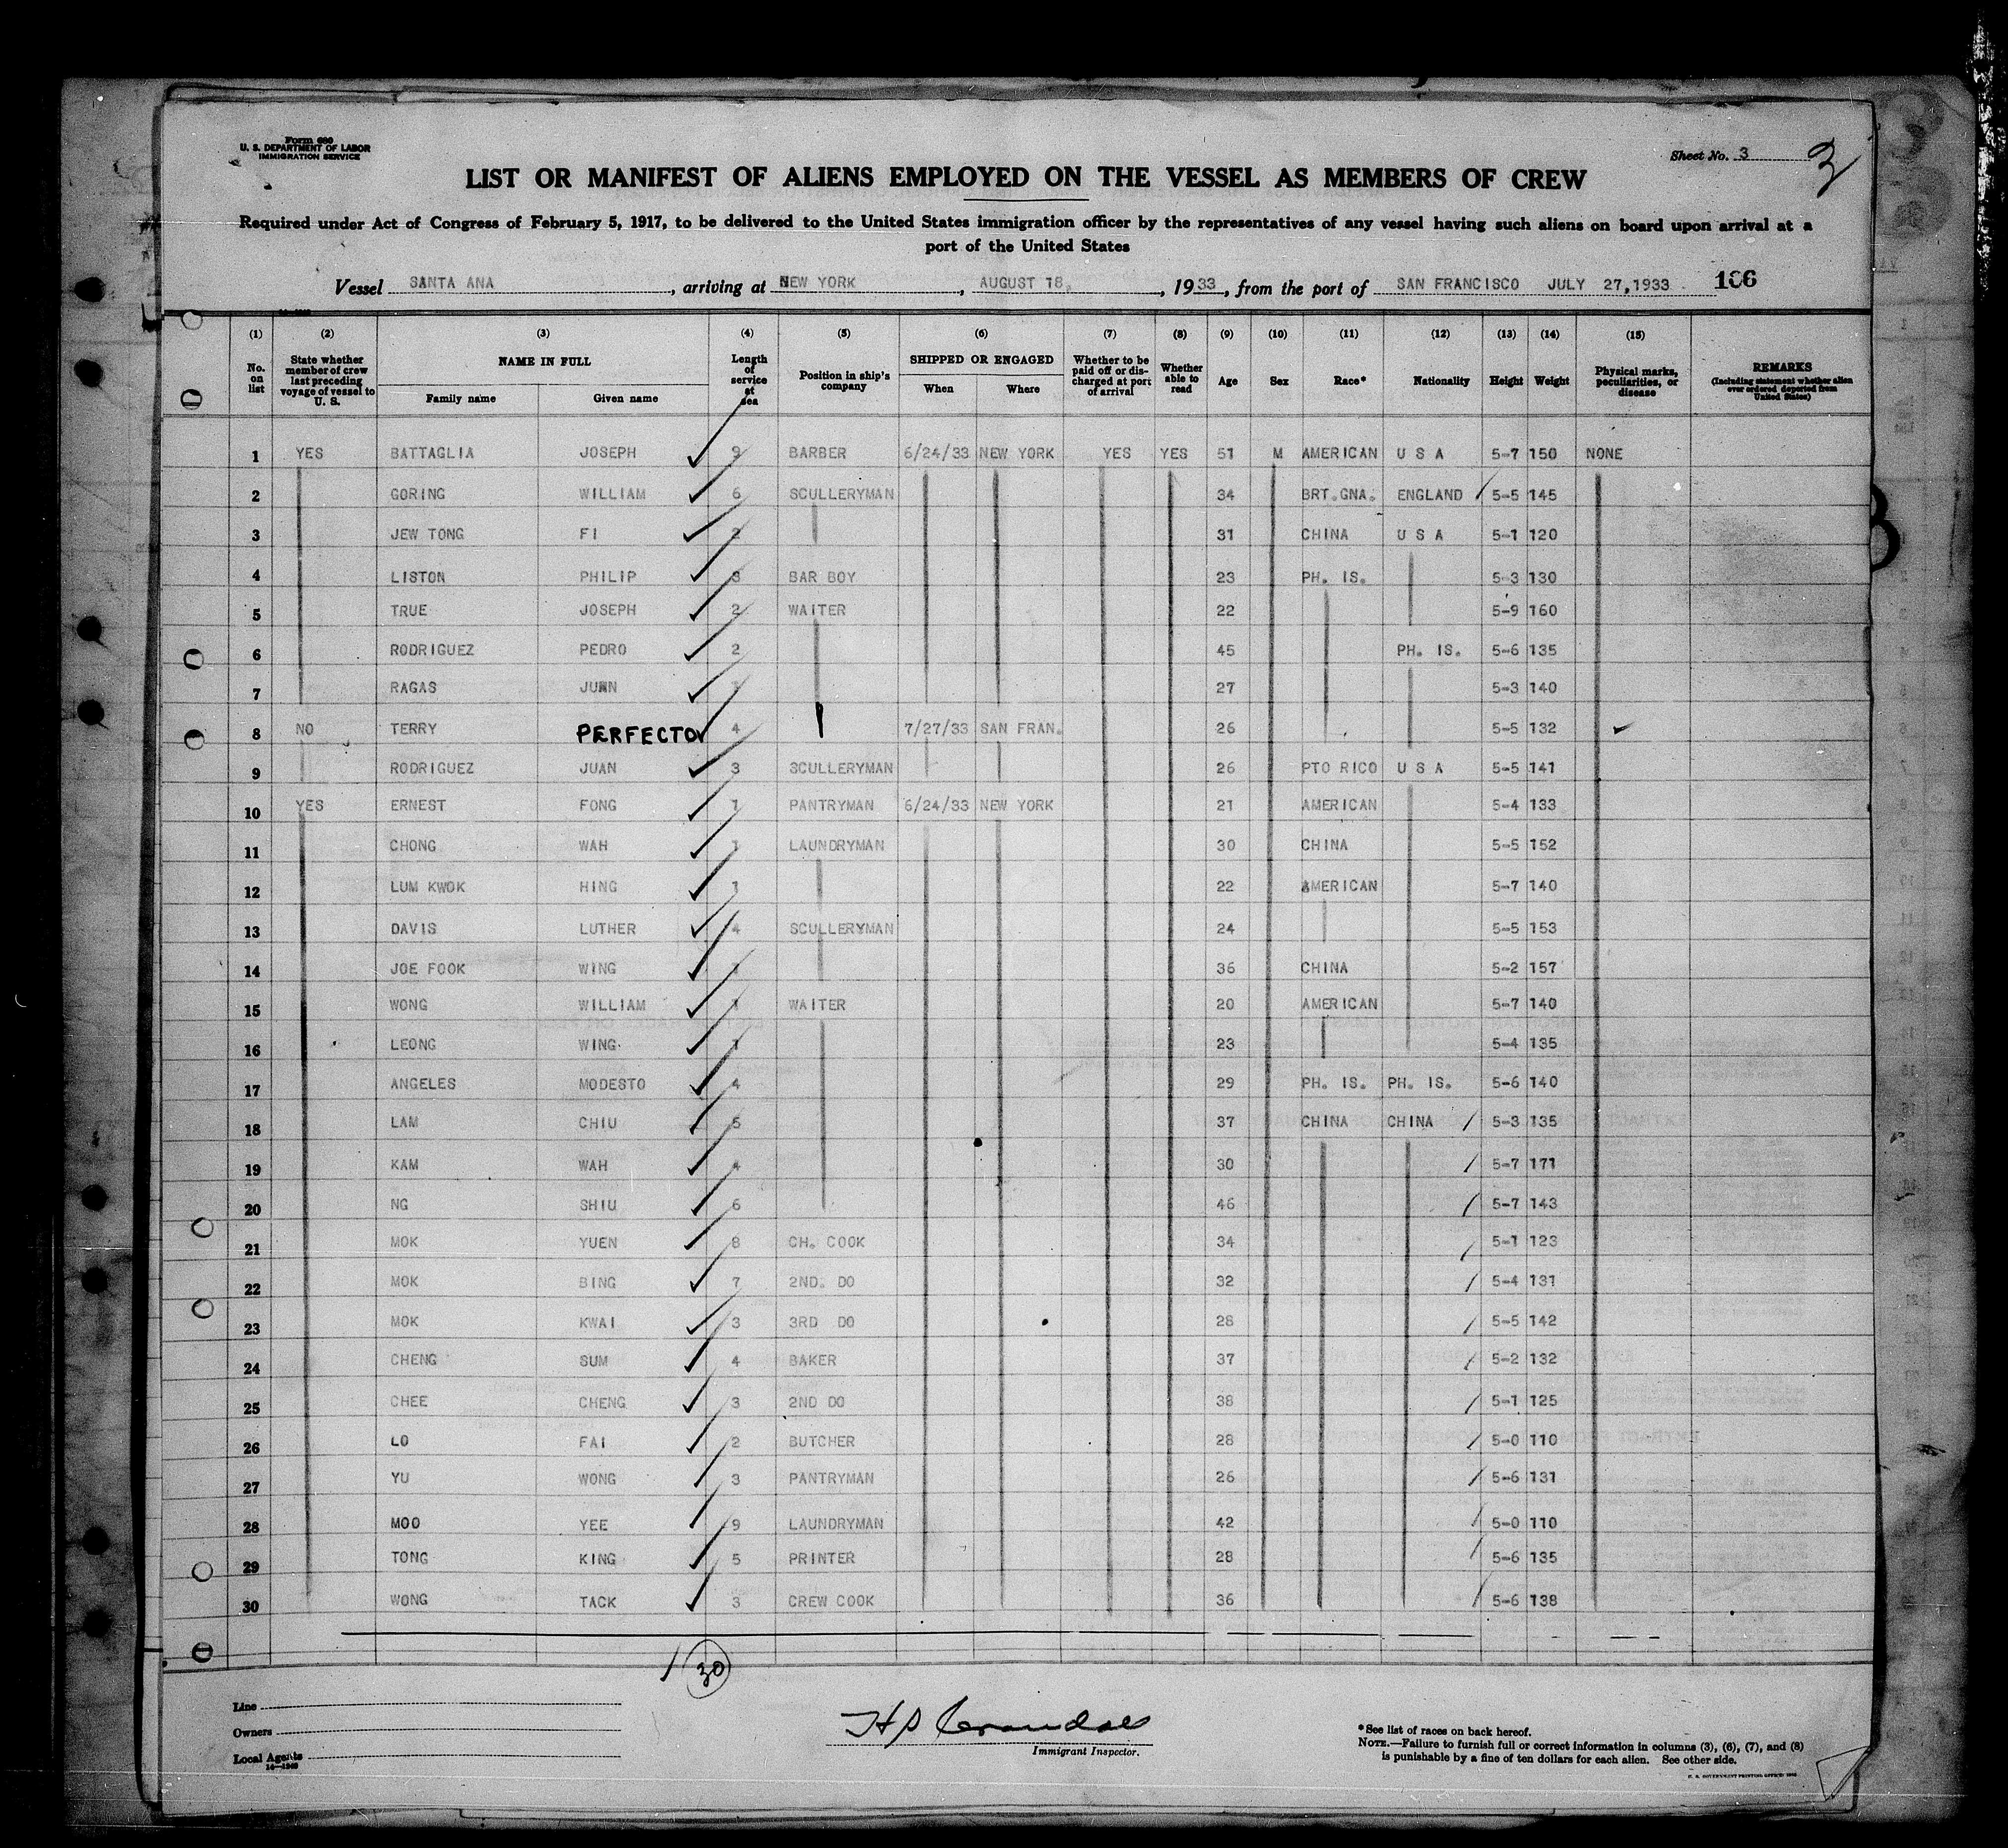 Form 680
U. S. DEPARTMENT OF LABOR
IMMIGRATION SERVICE
Sheet No. 3
3
LIST OR MANIFEST OF ALIENS EMPLOYED ON THE VESSEL AS MEMBERS OF CREW
Required under Act of Congress of February 5, 1917, to be delivered to the United States immigration officer by the representatives of any vessel having such aliens on board upon arrival at a
port of the United States
Vessel SANTA ANA, arriving at NEW YORK, AUGUST 18, 1933, from the port of SAN FRANCISCO JULY 27,1933 186
(1) (2) (3) (4) (5) (6) (7) (8) (9) (10) (11) (12) (13) (14) (15)
No. on list State whether member of crew last preceding voyage of vessel to U. S. NAME IN FULL Family name Given name Length of service at sea Position in ship's company SHIPPED OR ENGAGED When Where Whether to be paid off or discharged at port of arrival Whether able to read Age Sex Race* Nationality Height Weight Physical marks, peculiarities, or disease REMARKS (Including statement whether alien ever ordered deported from United States)
1 YES BATTAGLIA JOSEPH 9 BARBER 6/24/33 NEW YORK YES YES 51 M AMERICAN U S A 5-7 150 NONE
2 GORING WILLIAM 6 SCULLERYMAN 34 BRT.GNA. ENGLAND 5-5 145
3 JEW TONG FI 2 31 CHINA U S A 5-1 120
4 LISTON PHILIP BAR BOY 23 PH. IS. 5-3 130
5 TRUE JOSEPH 2 WAITER 22 5-9 160
6 RODRIGUEZ PEDRO 2 45 PH. IS. 5-6 135
7 RAGAS JUAN 27 5-3 140
8 NO TERRY PERFECTO 4 7/27/33 SAN FRAN. 26 5-5 132
9 RODRIGUEZ JUAN 3 SCULLERYMAN 26 PTO RICO U S A 5-5 141
10 YES ERNEST FONG 1 PANTRYMAN 6/24/33 NEW YORK 21 AMERICAN 5-4 133
11 CHONG WAH 1 LAUNDRYMAN 30 CHINA 5-5 152
12 LUM KWOK HING 1 22 AMERICAN 5-7 140
13 DAVIS LUTHER 4 SCULLERYMAN 24 5-5 153
14 JOE FOOK WING 36 CHINA 5-2 157
15 WONG WILLIAM 1 WAITER 20 AMERICAN 5-7 140
16 LEONG WING 1 23 5-4 135
17 ANGELES MODESTO 4 29 PH. IS. PH. IS. 5-6 140
18 LAM CHIU 5 37 CHINA CHINA 5-3 135
19 KAM WAH 4 30 5-7 171
20 NG SHIU 6 46 5-7 143
21 MOK YUEN 8 CH. COOK 34 5-1 123
22 MOK BING 7 2ND. DO 32 5-4 131
23 MOK KWAI 3 3RD DO 28 5-5 142
24 CHENG SUM 4 BAKER 37 5-2 132
25 CHEE CHENG 3 2ND DO 38 5-1 125
26 LO FAI 2 BUTCHER 28 5-0 110
27 YU WONG 3 PANTRYMAN 26 5-6 131
28 MOO YEE 9 LAUNDRYMAN 42 5-0 110
29 TONG KING 5 PRINTER 28 5-6 135
30 WONG TACK 3 CREW COOK 36 5-6 138
30
Line
Owners
Local Agents
14—1240
H P Crandall
Immigrant Inspector.
*See list of races on back hereof.
NOTE.—Failure to furnish full or correct information in columns (3), (6), (7), and (8)
is punishable by a fine of ten dollars for each alien. See other side.